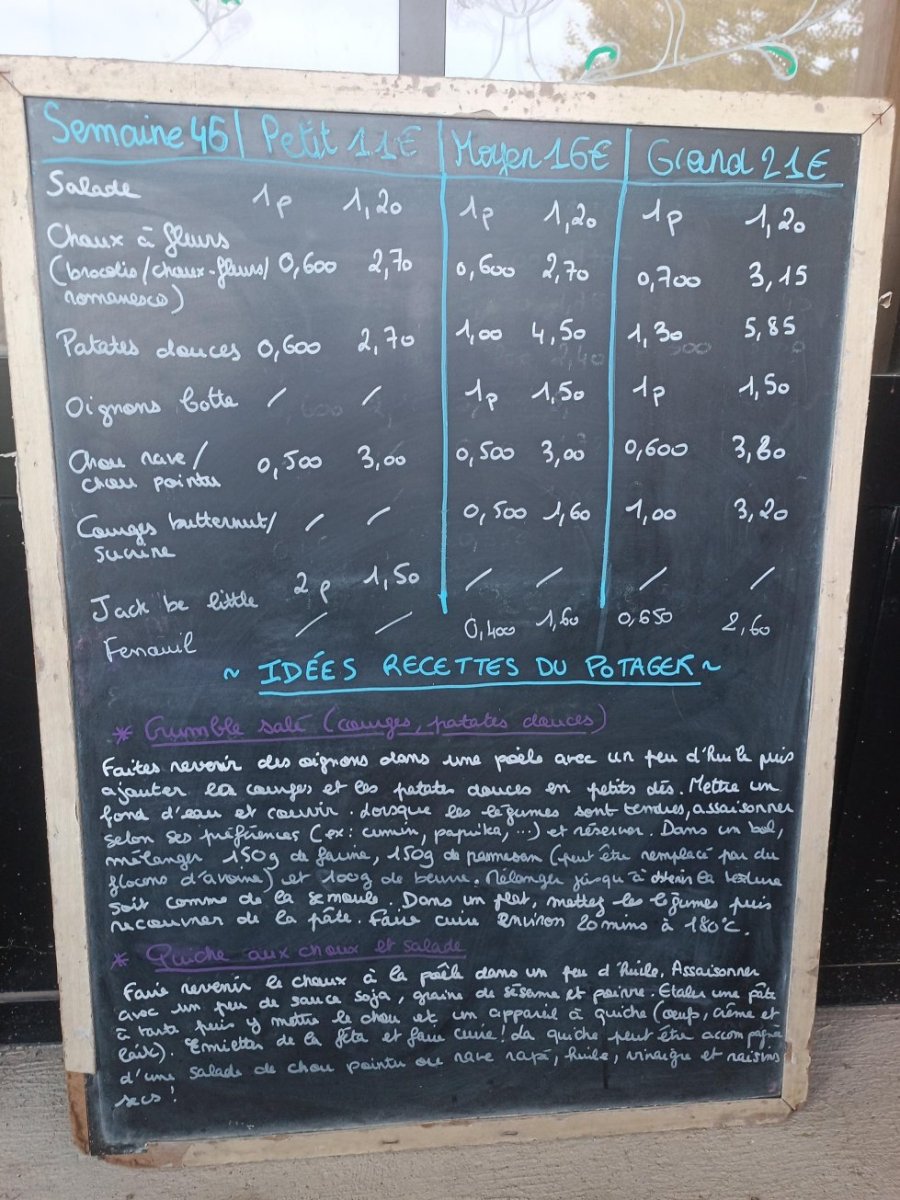 Semaine 46 | Petit 11€ | Moyen 16€ | Grand 21€
Salade 1p 1,20 1p 1,20 1p 1,20
Choux à fleurs
(brocolis/choux-fleurs/ 0,600 2,70 0,600 2,70 0,700 3,15
romanesco)
Patates douces 0,600 2,70 1,00 4,50 1,30 5,85
Oignons botte / / 1p 1,50 1p 1,50
Chou rave/ 0,500 3,00 0,500 3,00 0,600 3,80
chou pointu
Courges butternut/ / / 0,500 1,60 1,00 3,20
sucrine
Jack be little 2p 1,50 / / / /
Fenouil / / 0,400 1,60 0,650 2,60
~ IDÉES RECETTES DU POTAGER ~
* Crumble salé (courges, patates douces)
Faites revenir des oignons dans une poêle avec un peu d'huile puis
ajouter les courges et les patates douces en petits dés. Mettre un
fond d'eau et couvrir. Lorsque les légumes sont tendres, assaisonner
selon ses préférences (ex: cumin, paprika, ...) et réserver. Dans un bol,
mélanger 150g de farine, 150g de parmesan (peut être remplacé par du
flocons d'avoine) et 100g de beurre. Mélanger jusqu'à obtenir la texture
soit comme de la semoule. Dans un plat, mettez les légumes puis
recouvrer de la pâte. Faire cuire environ 20mins à 180°C.
* Quiche aux choux et salade
Faire revenir le choux à la poêle dans un peu d'huile. Assaisonner
avec un peu de sauce soja, graine de sésame et poivre. Etaler une pâte
à tarte puis y mettre le chou et un appareil à quiche (oeuf, crème et
lait). Emietter de la féta et faire cuire! La quiche peut être accompagnée
d'une salade de chou pointu ou rave rapé, huile, vinaigre et raisins
secs !